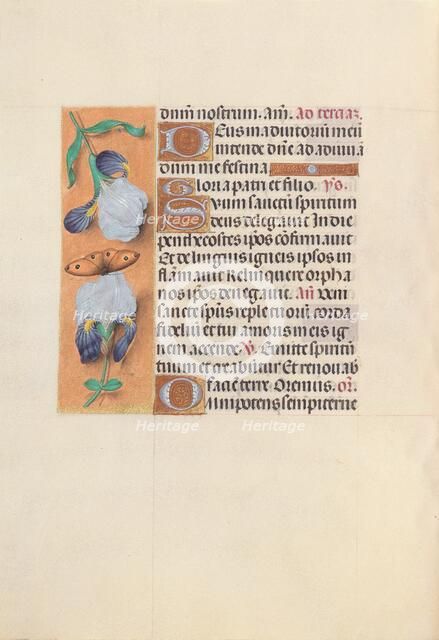 dñm nostrum. am̃. ad terciaz.
Deus in adiutoriũ meũ
intende dñe ad adiuuã
dum me festina
Gloria patri et filio. ỹo.
Suum sanctũ spiritum
deus delegauit In die
penthecostes ip̃os cõfirmauit
Et de linguis igneis ipsos in
flãmauit Relinquere orpha
nos ip̃os denegauit. Añ Veni
sancte sp̃us reple tuorũ corda
fidelium et tui amoris in eis ig
nem accende. V̷. Emitte spiritũ
tuum et creabuntur Et renouab
faciẽ terre. Oremus. or̃.
Omnipotens sempiterne
Heritage
Heritage
Heritage
Heritage
Heritage
Heritage